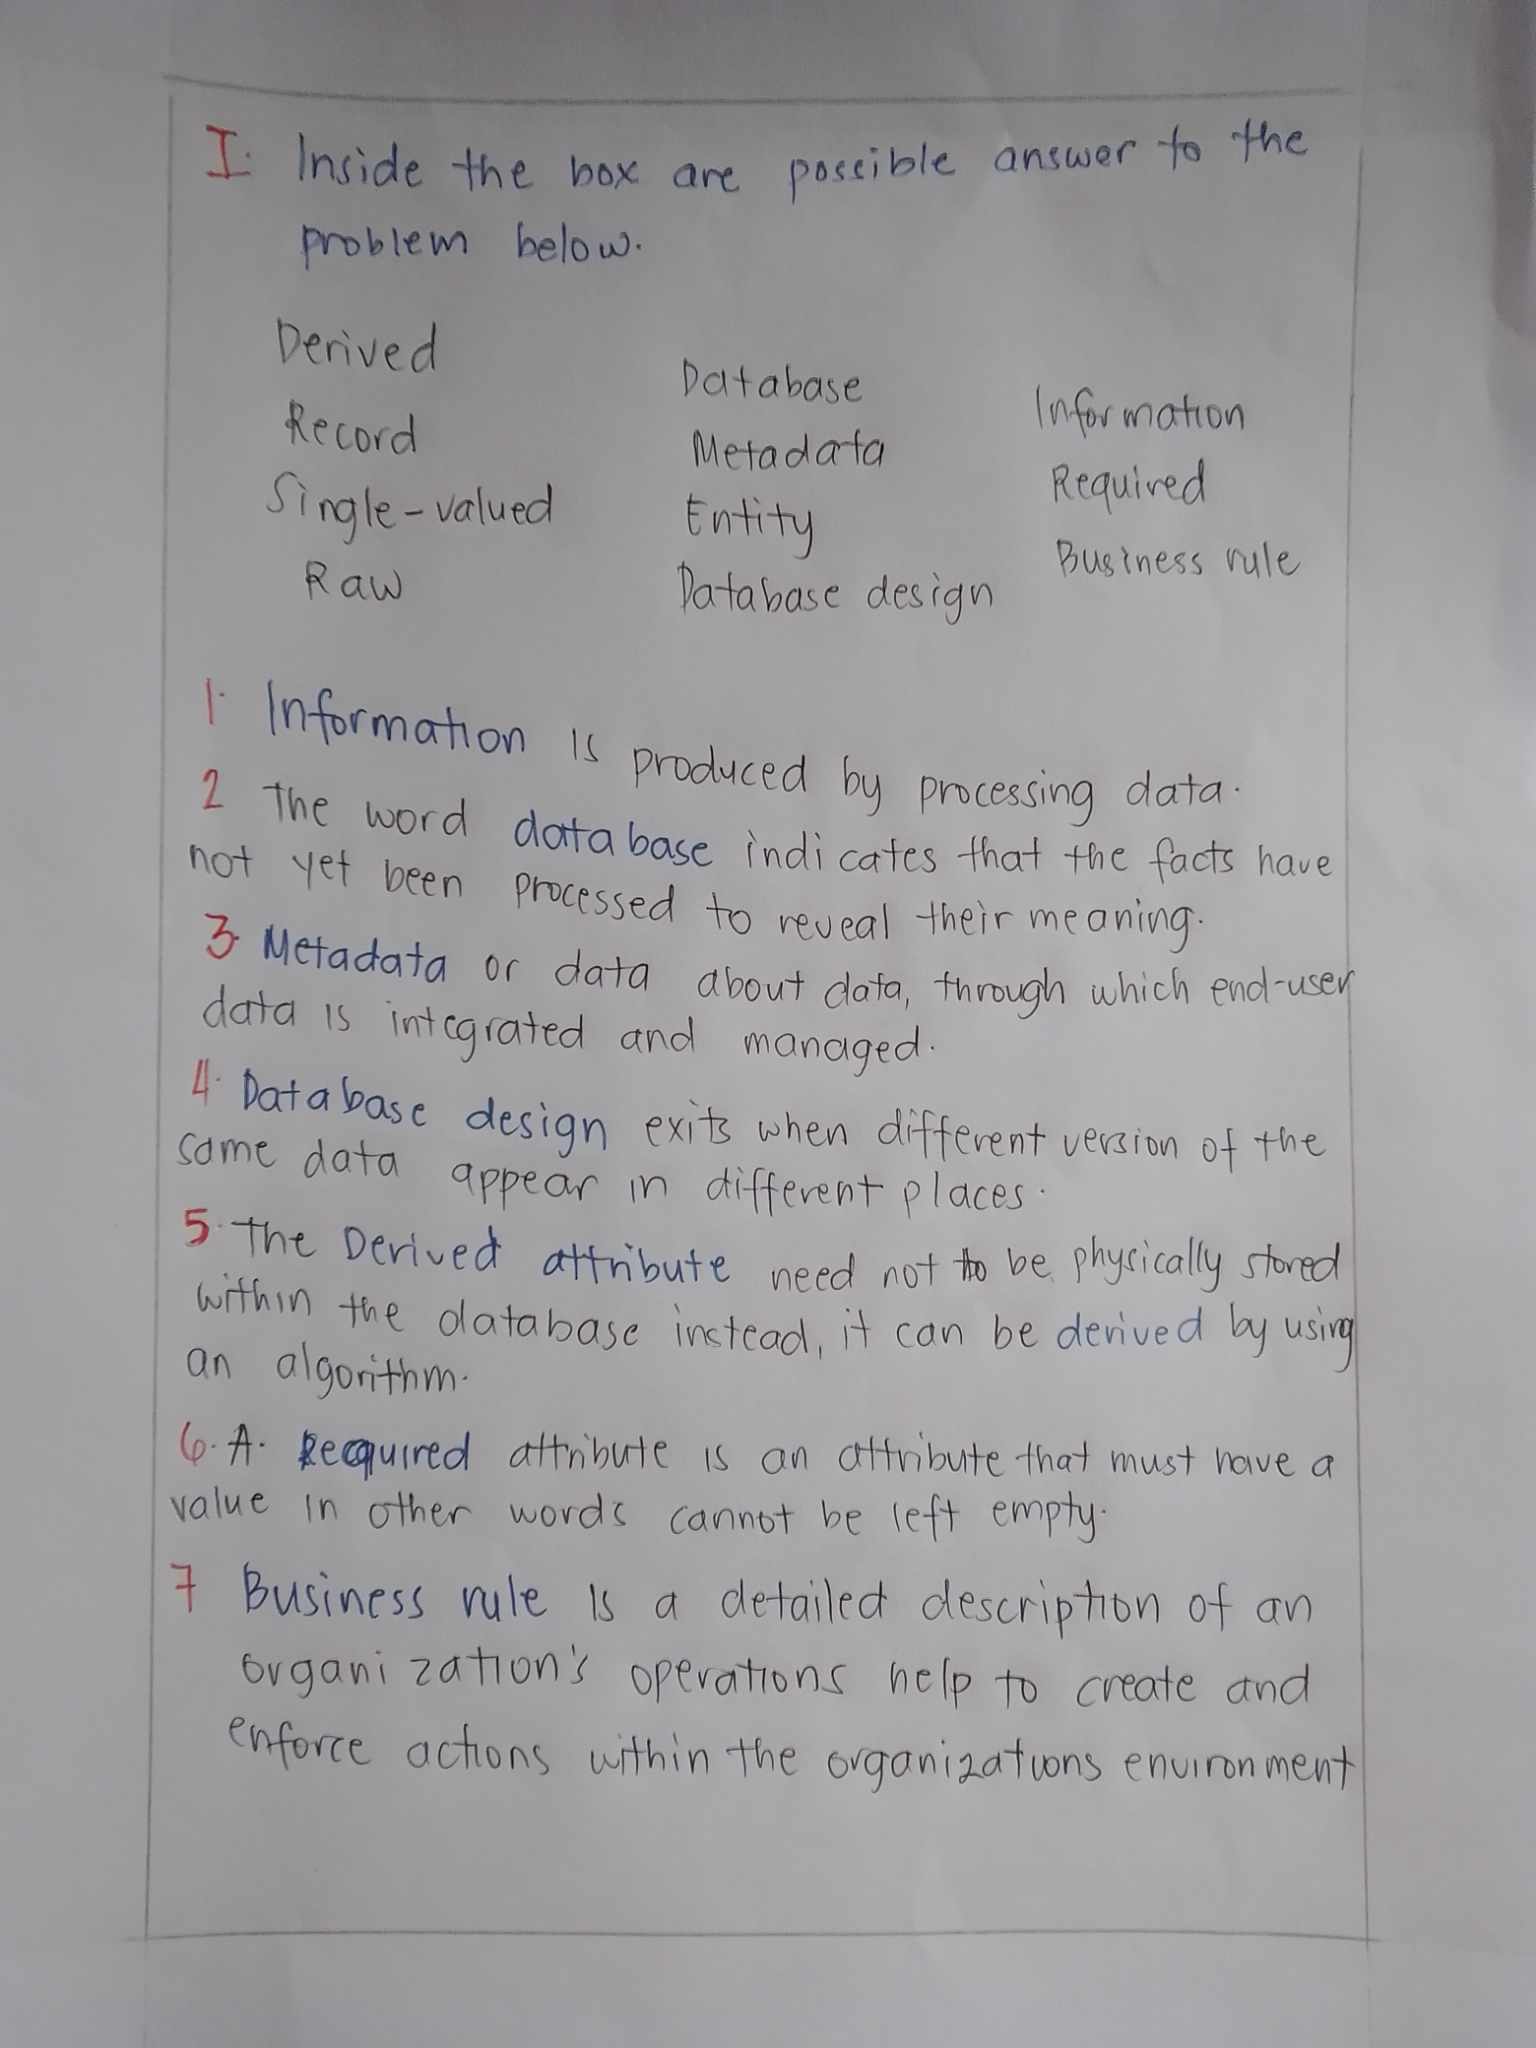 I. Inside the box are possible answer to the
problem below.
Derived
Record
Single-valued
Raw
Database
Metadata
Entity
Database design
Information
Required
Business rule
1. Information is produced by processing data.
2 The word database indicates that the facts have
not yet been processed to reveal their meaning.
3. Metadata or data about data, through which end-user
data is integrated and managed.
4. Database design exits when different version of the
same data appear in different places.
5. The Derived attribute need not to be physically stored
within the database instead, it can be derived by using
an algorithm.
6. A. Required attribute is an attribute that must have a
value in other words cannot be left empty.
7 Business rule is a detailed description of an
organization's operations help to create and
enforce actions within the organizations environment